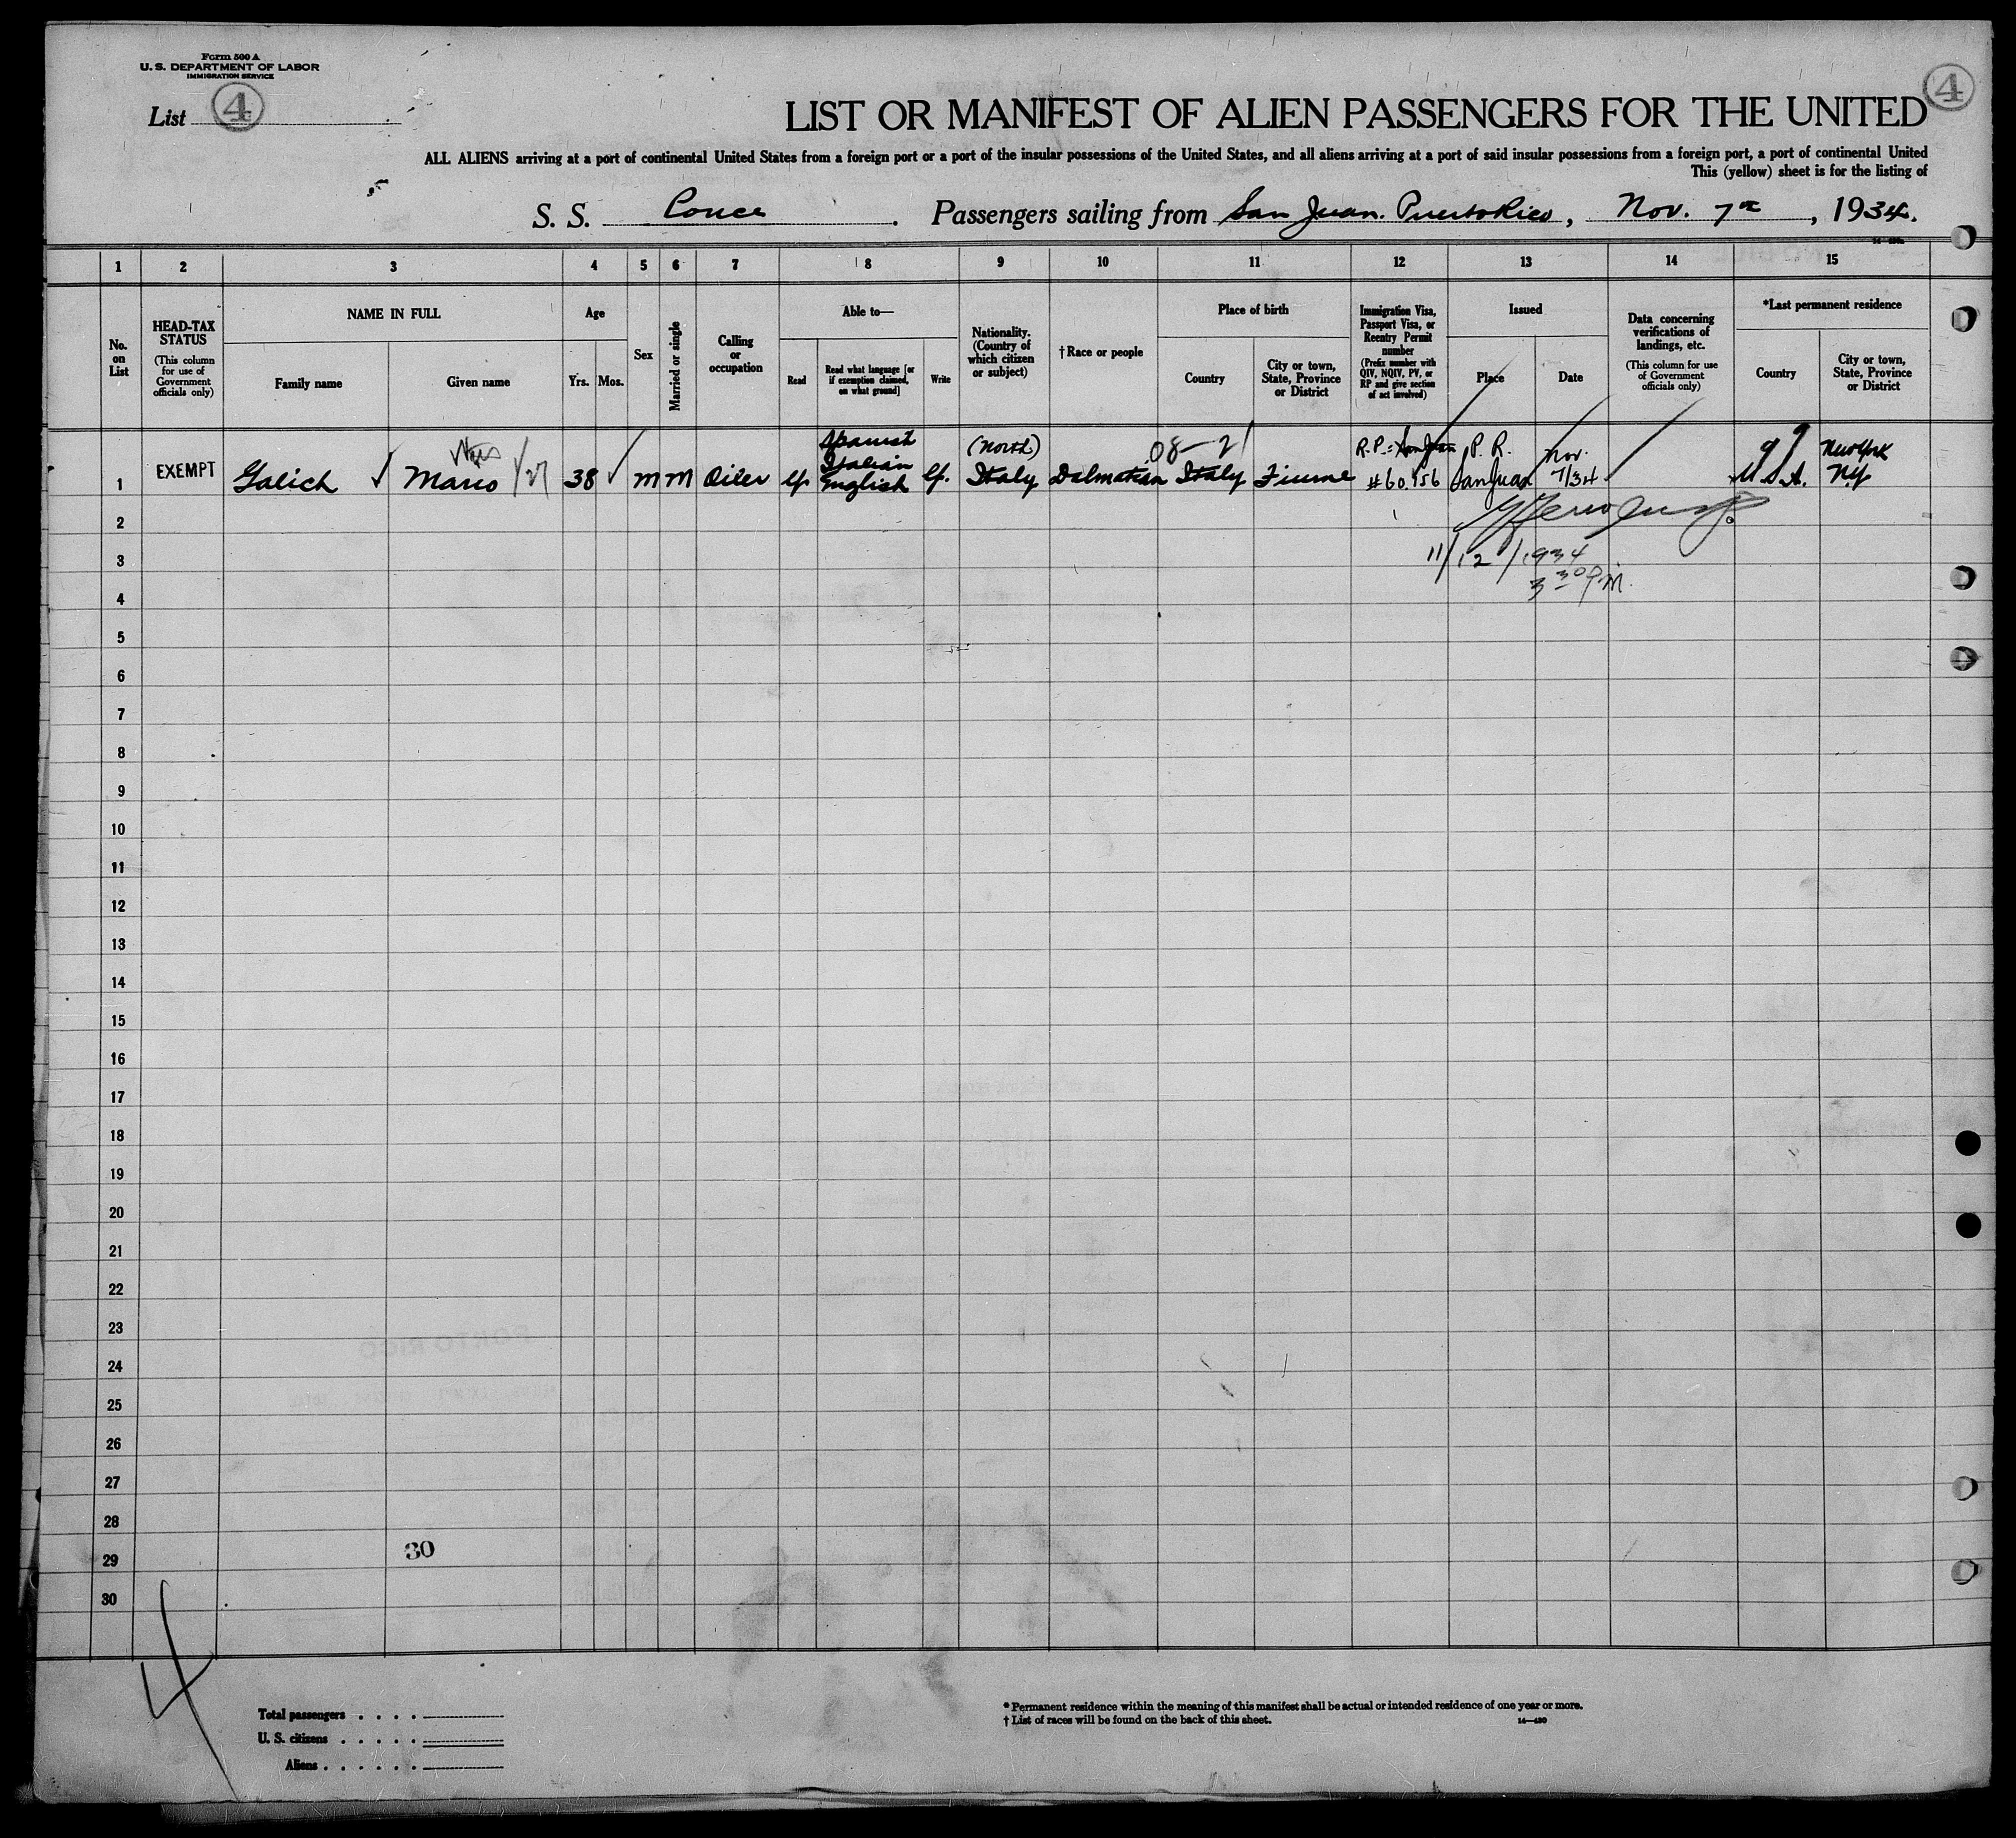 Form 500 A
U. S. DEPARTMENT OF LABOR
IMMIGRATION SERVICE
List 4
4
LIST OR MANIFEST OF ALIEN PASSENGERS FOR THE UNITED
ALL ALIENS arriving at a port of continental United States from a foreign port or a port of the insular possessions of the United States, and all aliens arriving at a port of said insular possessions from a foreign port, a port of continental United
This (yellow) sheet is for the listing of
S. S. Ponce. Passengers sailing from San Juan. Puerto Rico, Nov. 7th, 1934.
1 2 3 4 5 6 7 8 9 10 11 12 13 14 15
No. on List
HEAD-TAX STATUS
(This column for use of Government officials only)
NAME IN FULL
Family name
Given name
Age
Yrs. Mos.
Sex
Married or single
Calling or occupation
Able to—
Read
Read what language [or if exemption claimed, on what ground]
Write
Nationality. (Country of which citizen or subject)
† Race or people
Place of birth
Country
City or town, State, Province or District
Immigration Visa, Passport Visa, or Reentry Permit number
(Prefix number with QIV, NQIV, PV, or RP and give section of act involved)
Issued
Place
Date
Data concerning verifications of landings, etc.
(This column for use of Government officials only)
*Last permanent residence
Country
City or town, State, Province or District
Spanish (North) 08-21 R.P.= San Juan P. R. Nov. New York
1 EXEMPT Galich Mario 38 M M Oiler Italian English Italy Dalmatian Italy Fiume #60.156 San Juan 7/34 U.S.A. N.Y
2
11/12/1934
3
3 30 P.M.
4
5
6
7
8
9
10
11
12
13
14
15
16
17
18
19
20
21
22
23
24
25
26
27
28
30
29
30
4
Total passengers . . . .
U. S. citizens . . . . .
Aliens . . . . . .
* Permanent residence within the meaning of this manifest shall be actual or intended residence of one year or more.
† List of races will be found on the back of this sheet.
14—430